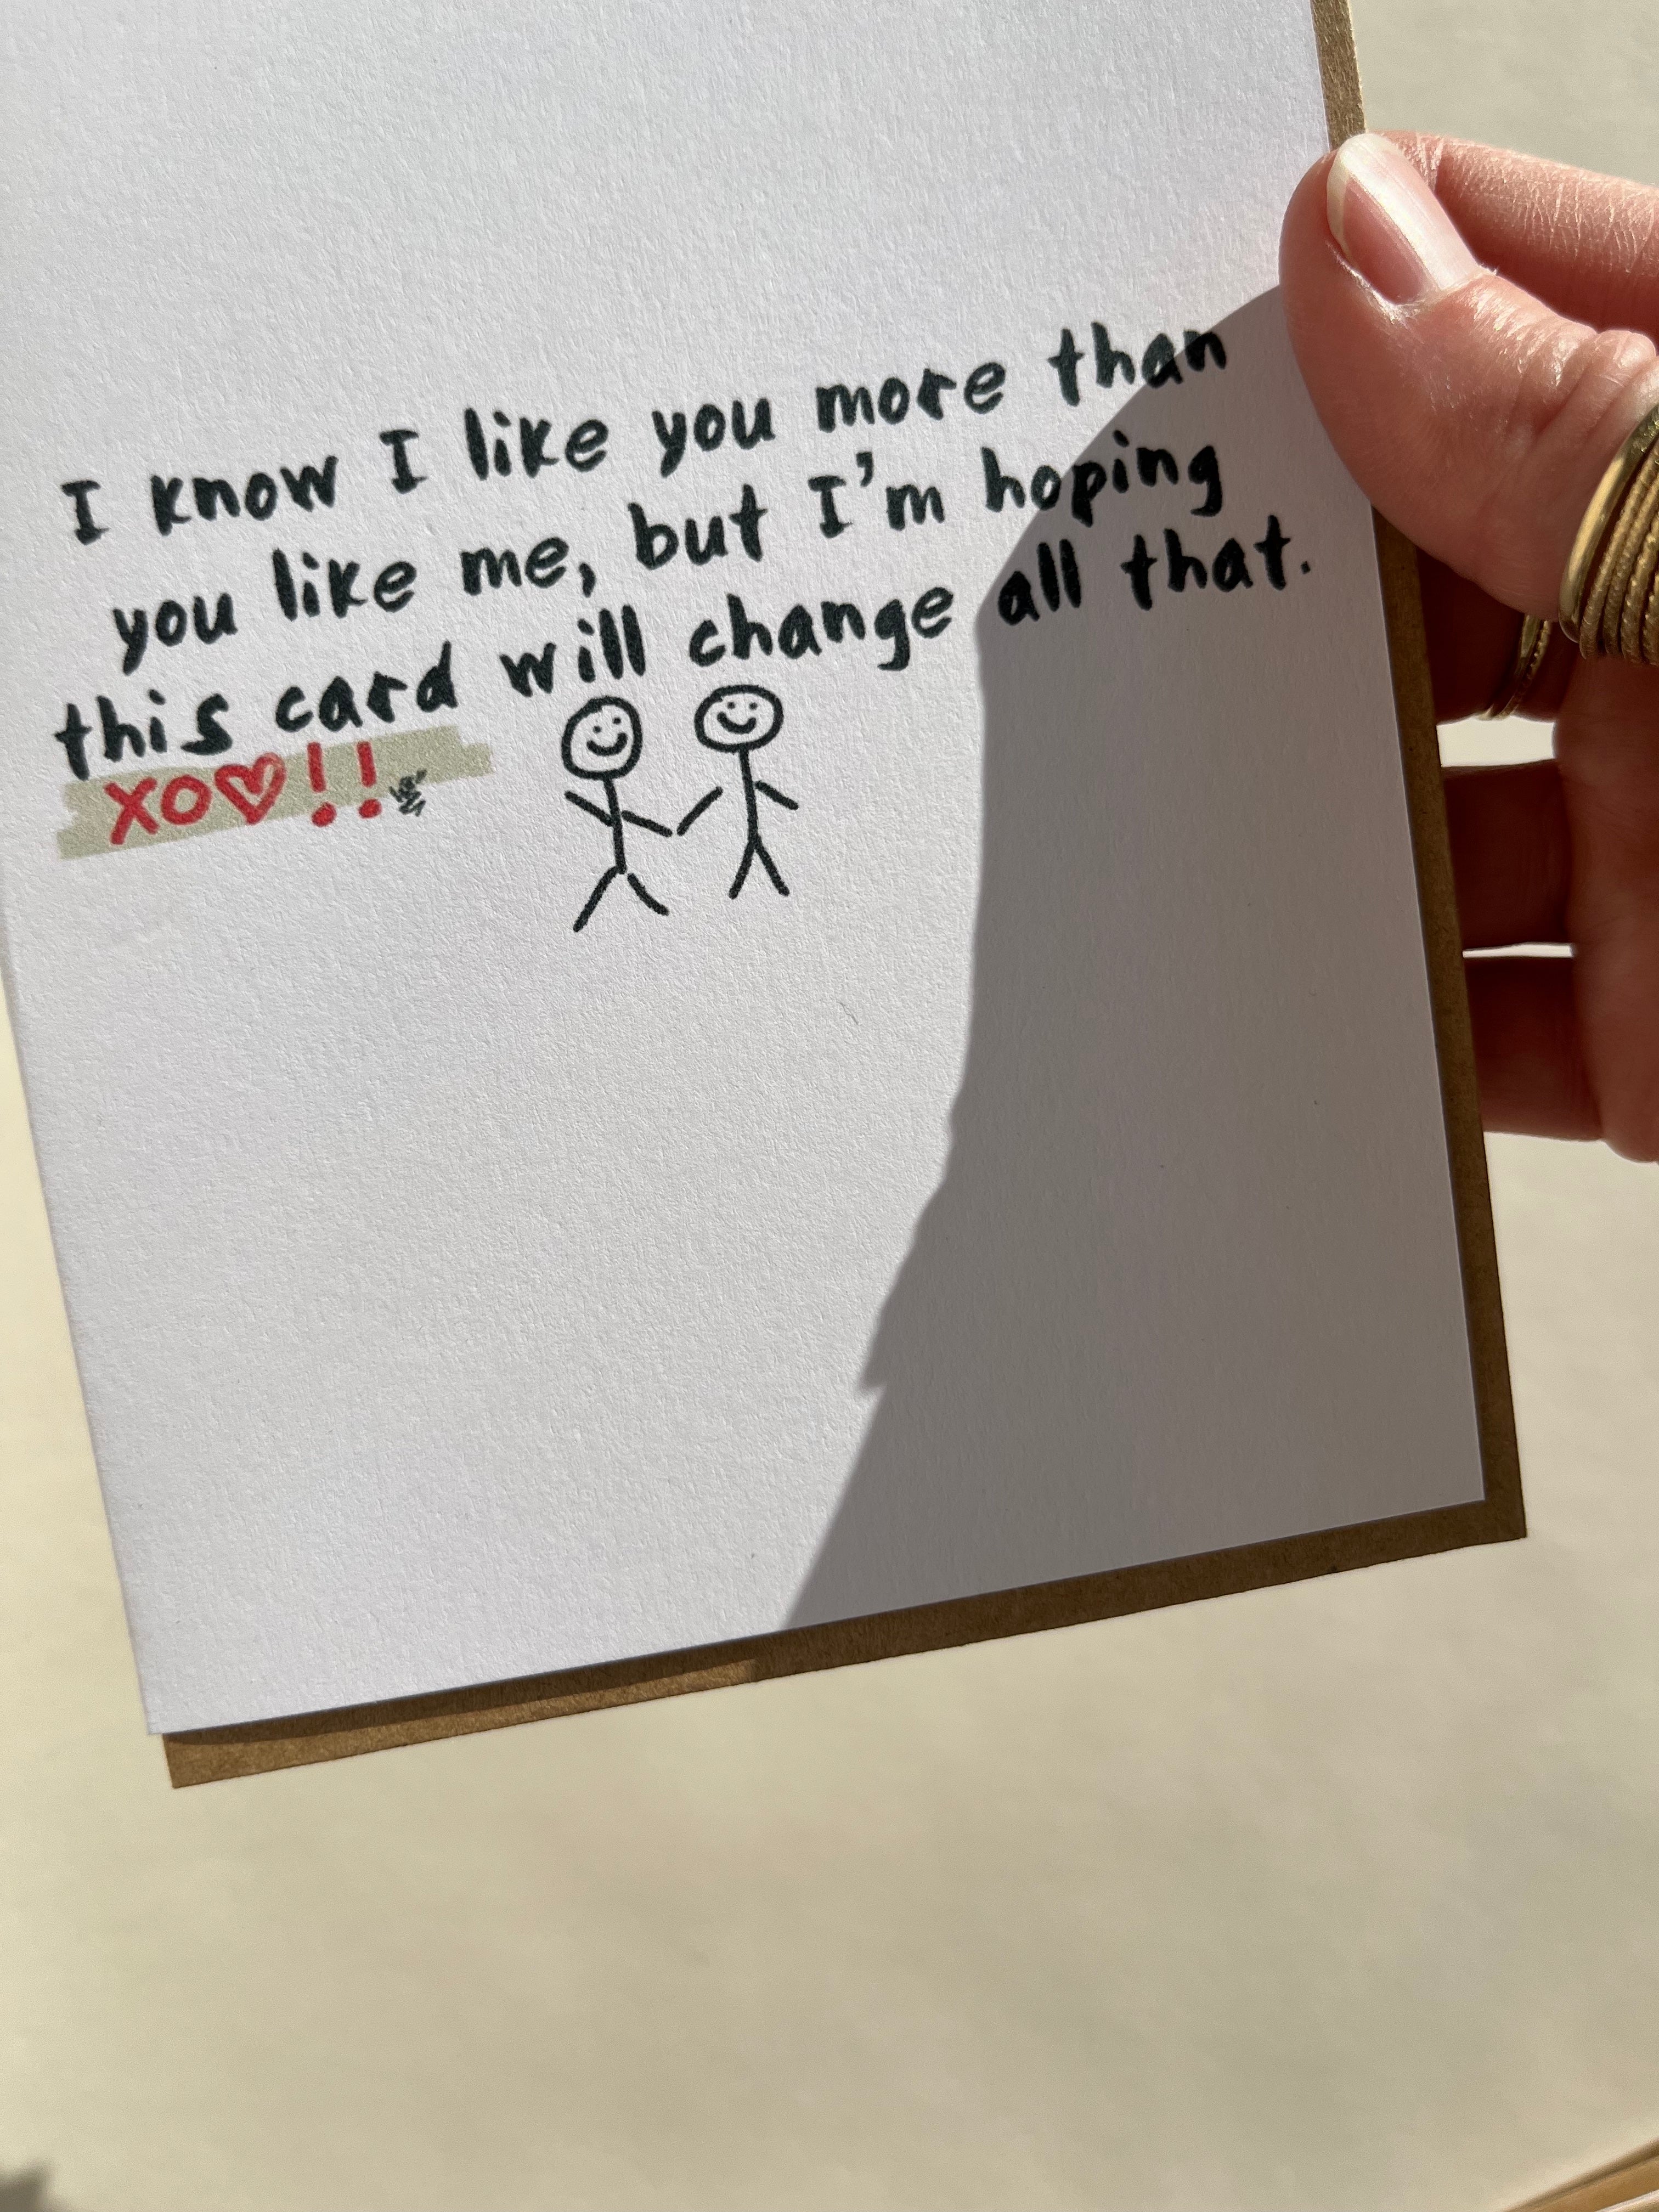 I know I like you more than
you like me, but I'm hoping
this card will change all that.
XO♡!!